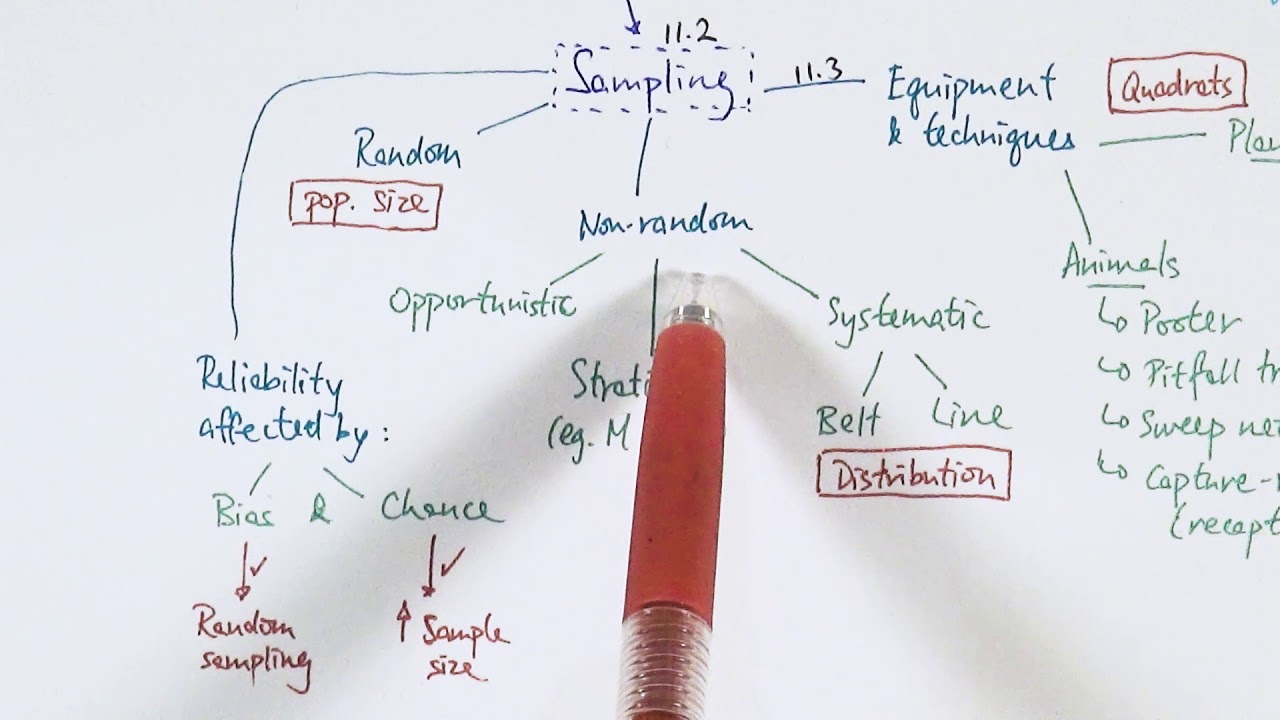 11.2
Sampling
11.3
Equipment
& techniques
Quadrats
Random
pop. size
Non-random
Opportunistic
Systematic
Belt
Line
Distribution
(eg. M
Animals
↳ Pooter
↳ Pitfall
↳ Sweep
↳ Capture-
Reliability
affected by:
Bias & Chance
↓✓
Random
sampling
↓✓
↑ Sample
size